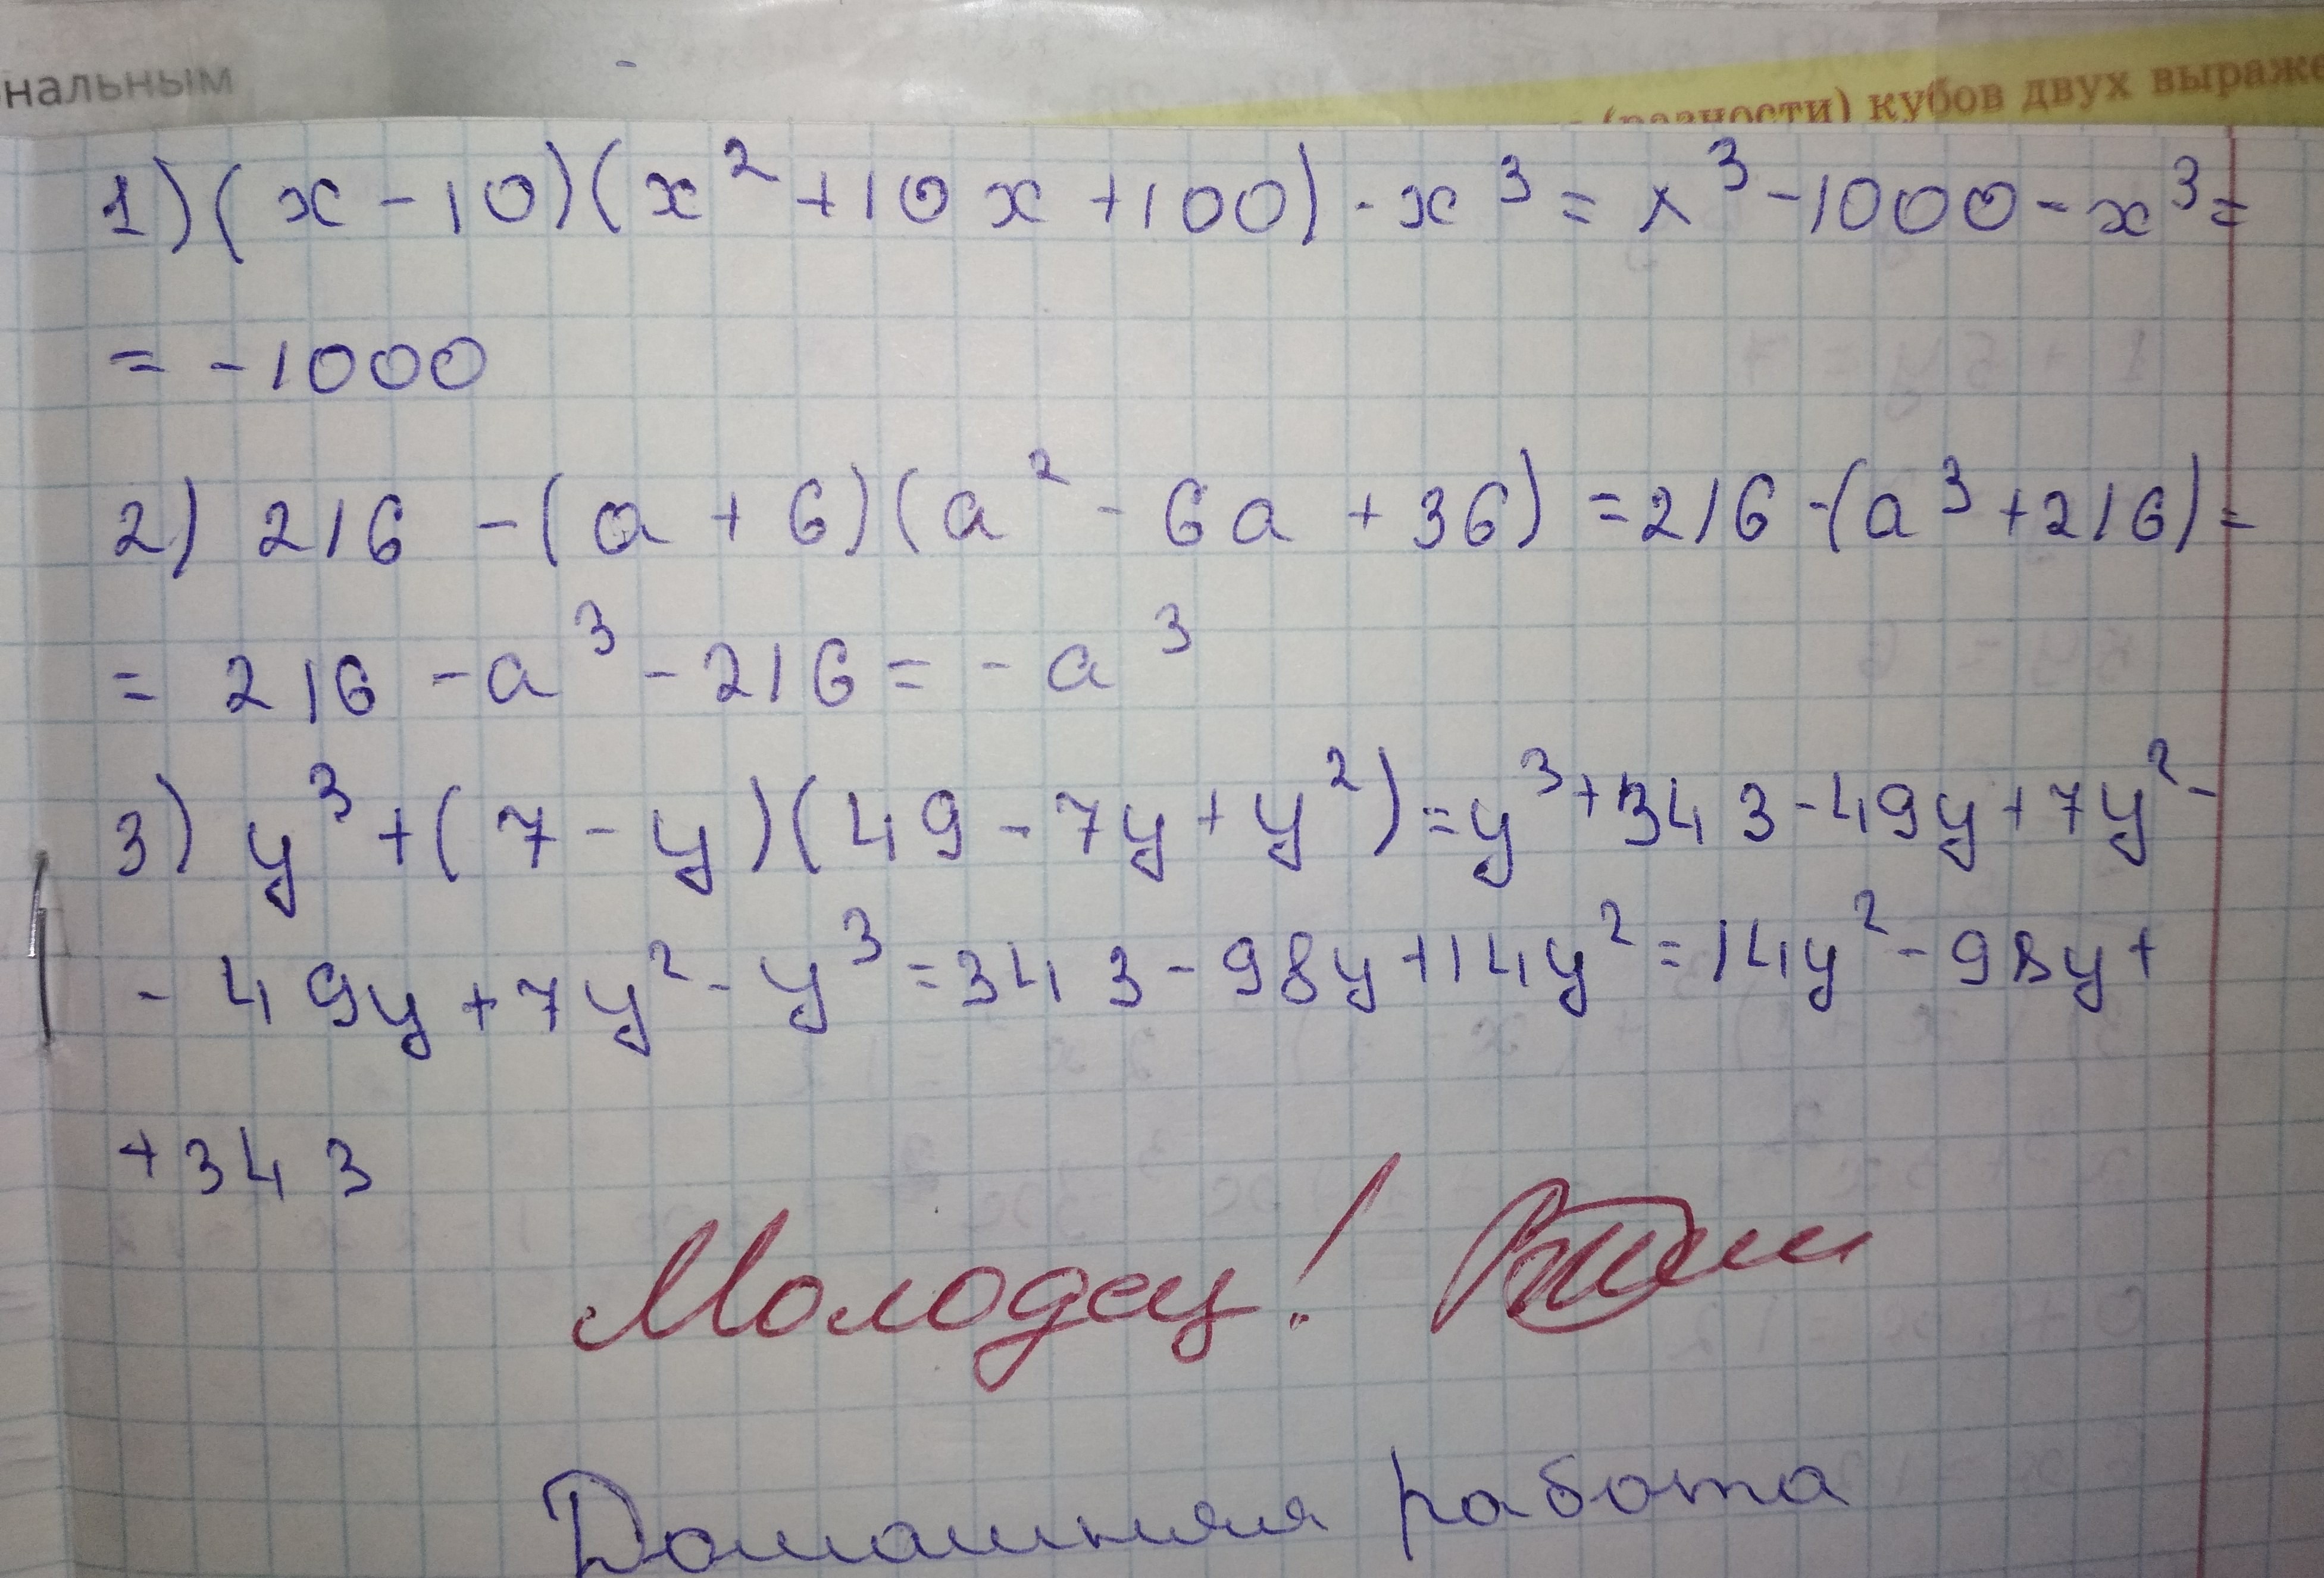 нальным
(разности) кубов двух выраже
1) (x - 10)(x² + 10x + 100) - x³ = x³ - 1000 - x³ =
= - 1000
2) 216 - (a + 6)(a² - 6a + 36) = 216 - (a³ + 216) =
= 216 - a³ - 216 = - a³
3) y³ + (7 - y)(49 - 7y + y²) = y³ + 343 - 49y + 7y² -
- 49y + 7y² - y³ = 343 - 98y + 14y² = 14y² - 98y +
+ 343
Молодец!
Домашняя работа